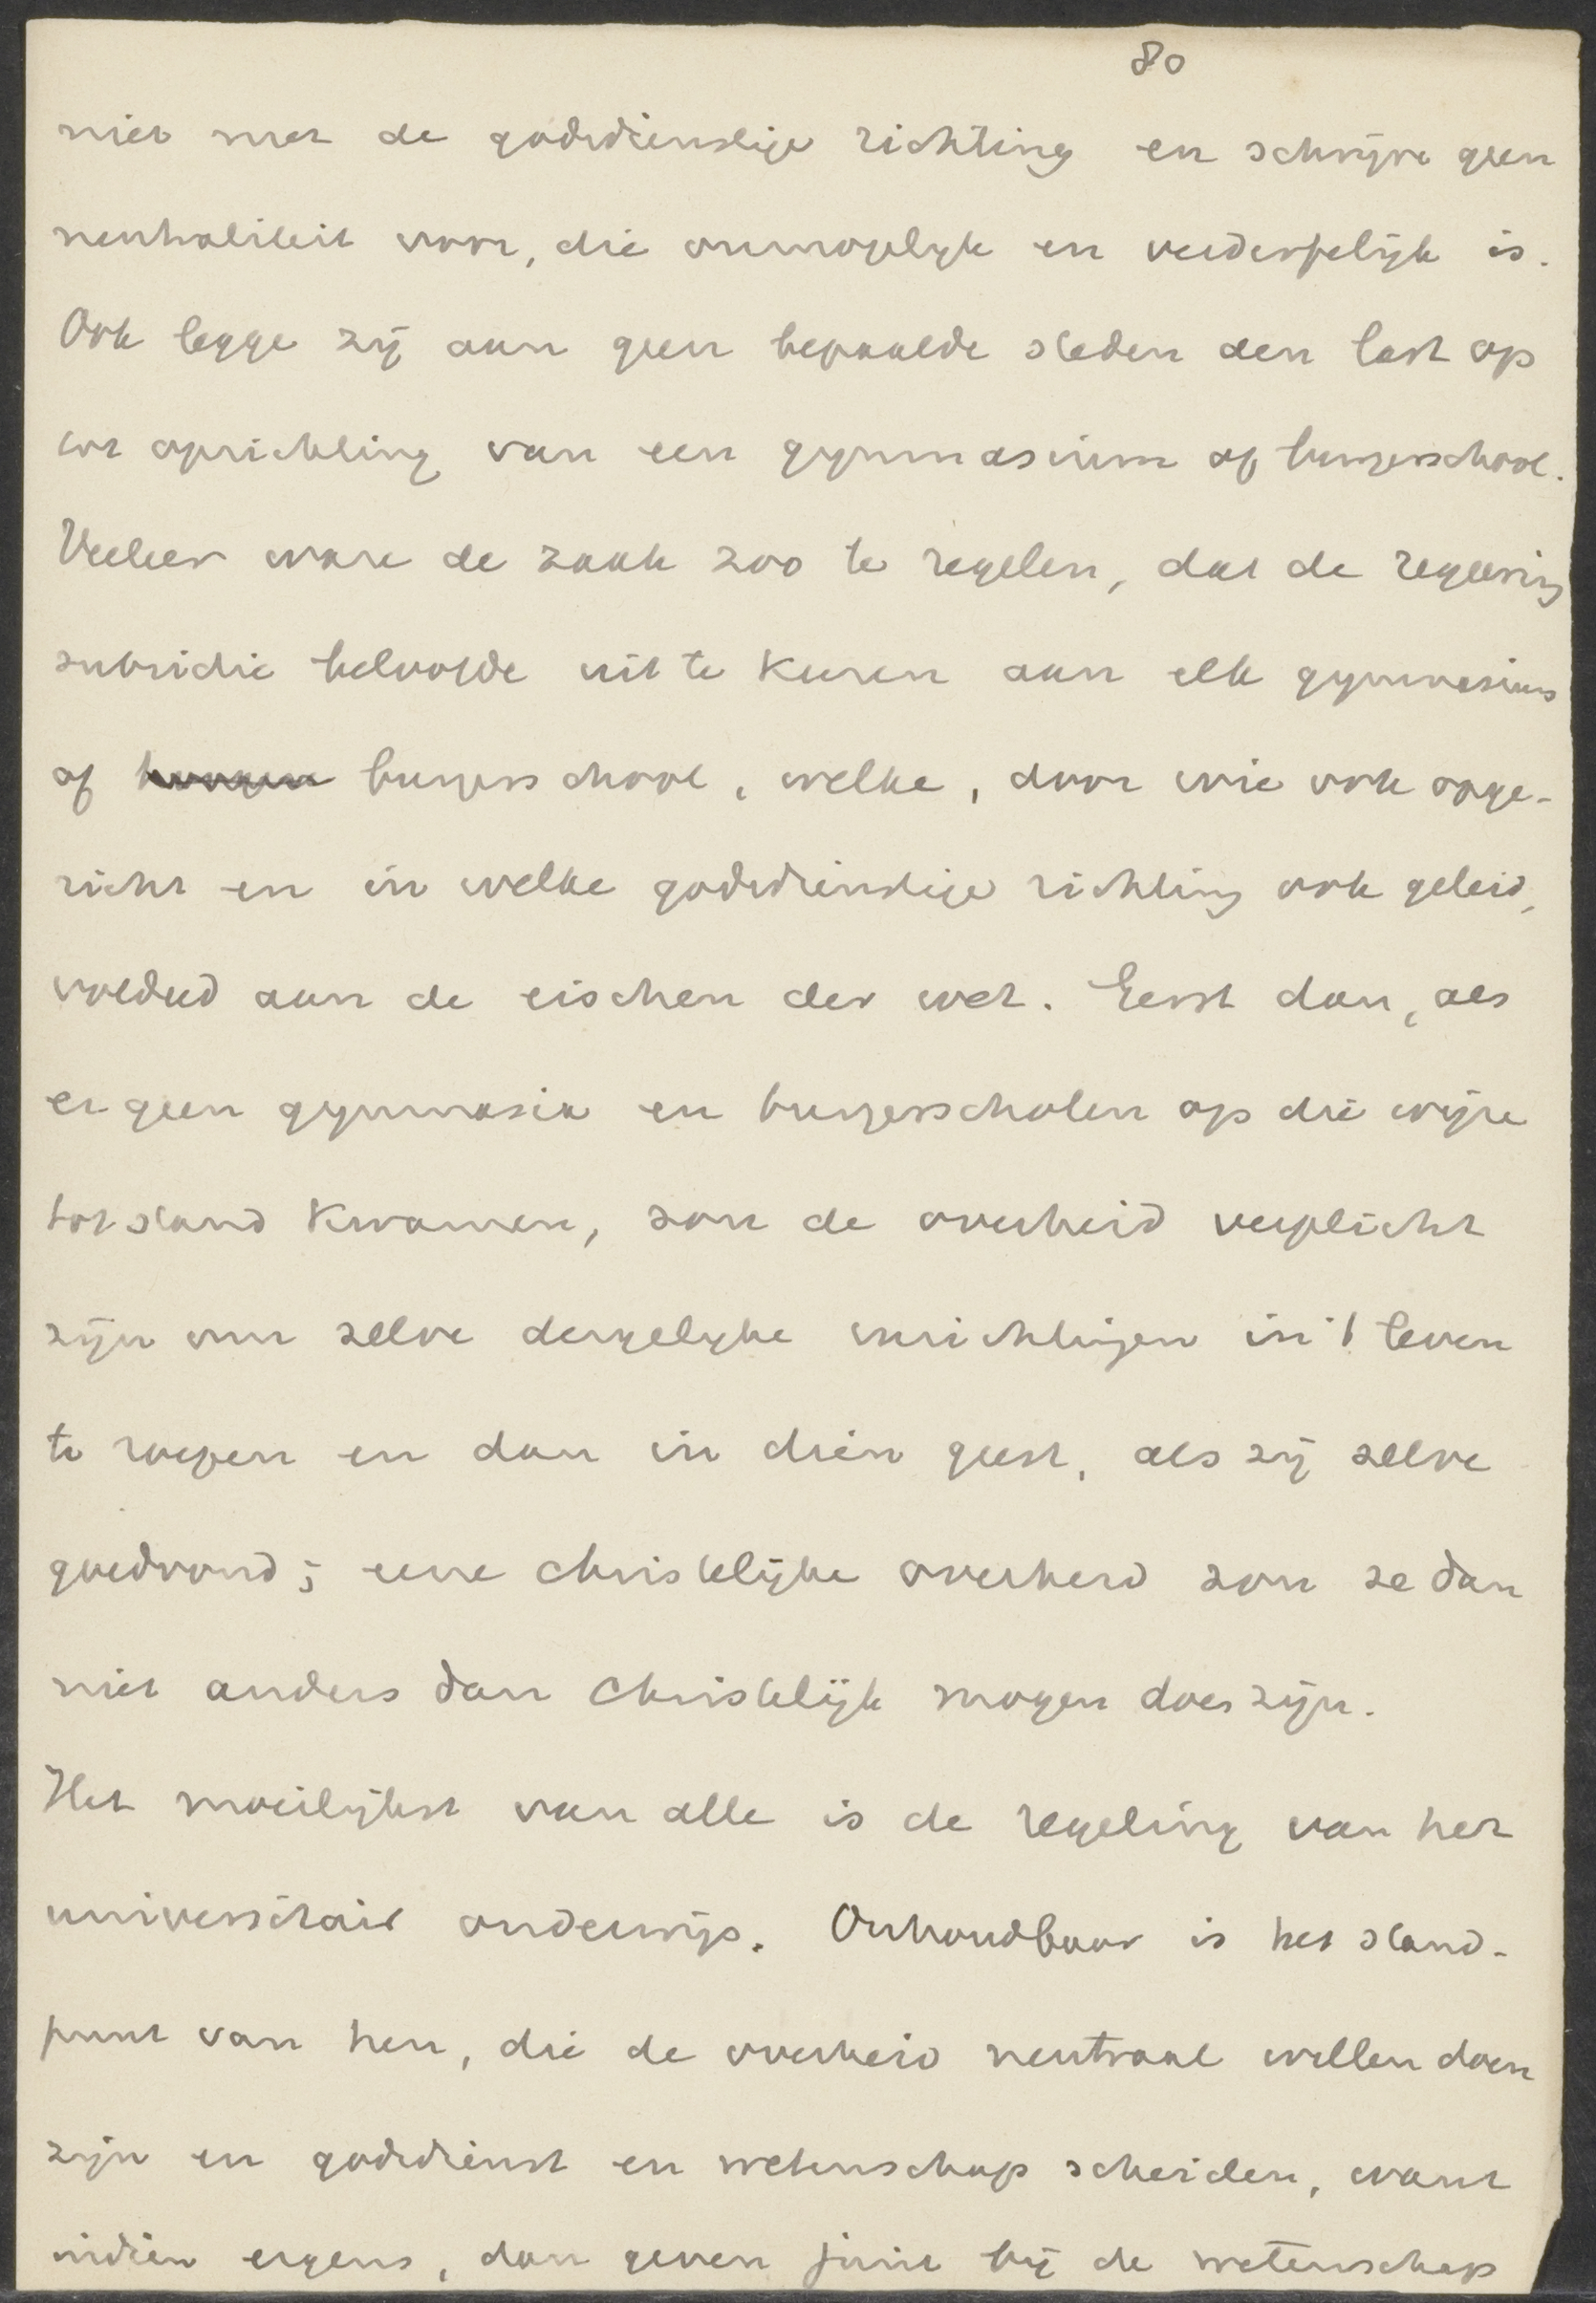 80
niet met de godsdienstige richting en schrijve geen
neutraliteit voor, die onmogelijk en verderfelijk is.
Ook legge zij aan geen bepaalde steden den last op
tot oprichting van een gymnasium of burgerschool.
Veeleer ware de zaak zoo te regelen, dat de regeering
subsidie beloofde uit te keeren aan elk gymnasium
of burgerschool, welke, door wie ook opge-
richt en in welke godsdienstige richting ook geleid,
voldeed aan de eischen der wet. Eerst dan, als
er geen gymnasia en burgerscholen op die wijze
tot stand kwamen, zou de overheid verplicht
zijn om zelve dergelijke inrichtingen in 't leven
te roepen en dan in dien geest, als zij zelve
goedvond; eene christelijke overheid zou ze dan
niet anders dan christelijk mogen doen zijn.
Het moeilijkst van alle is de regeling van het
universitair onderwijs. Onhoudbaar is het stand-
punt van hen, die de overheid neutraal willen doen
zijn en godsdienst en wetenschap scheiden, want
indien ergens, dan geven juist bij de wetenschap